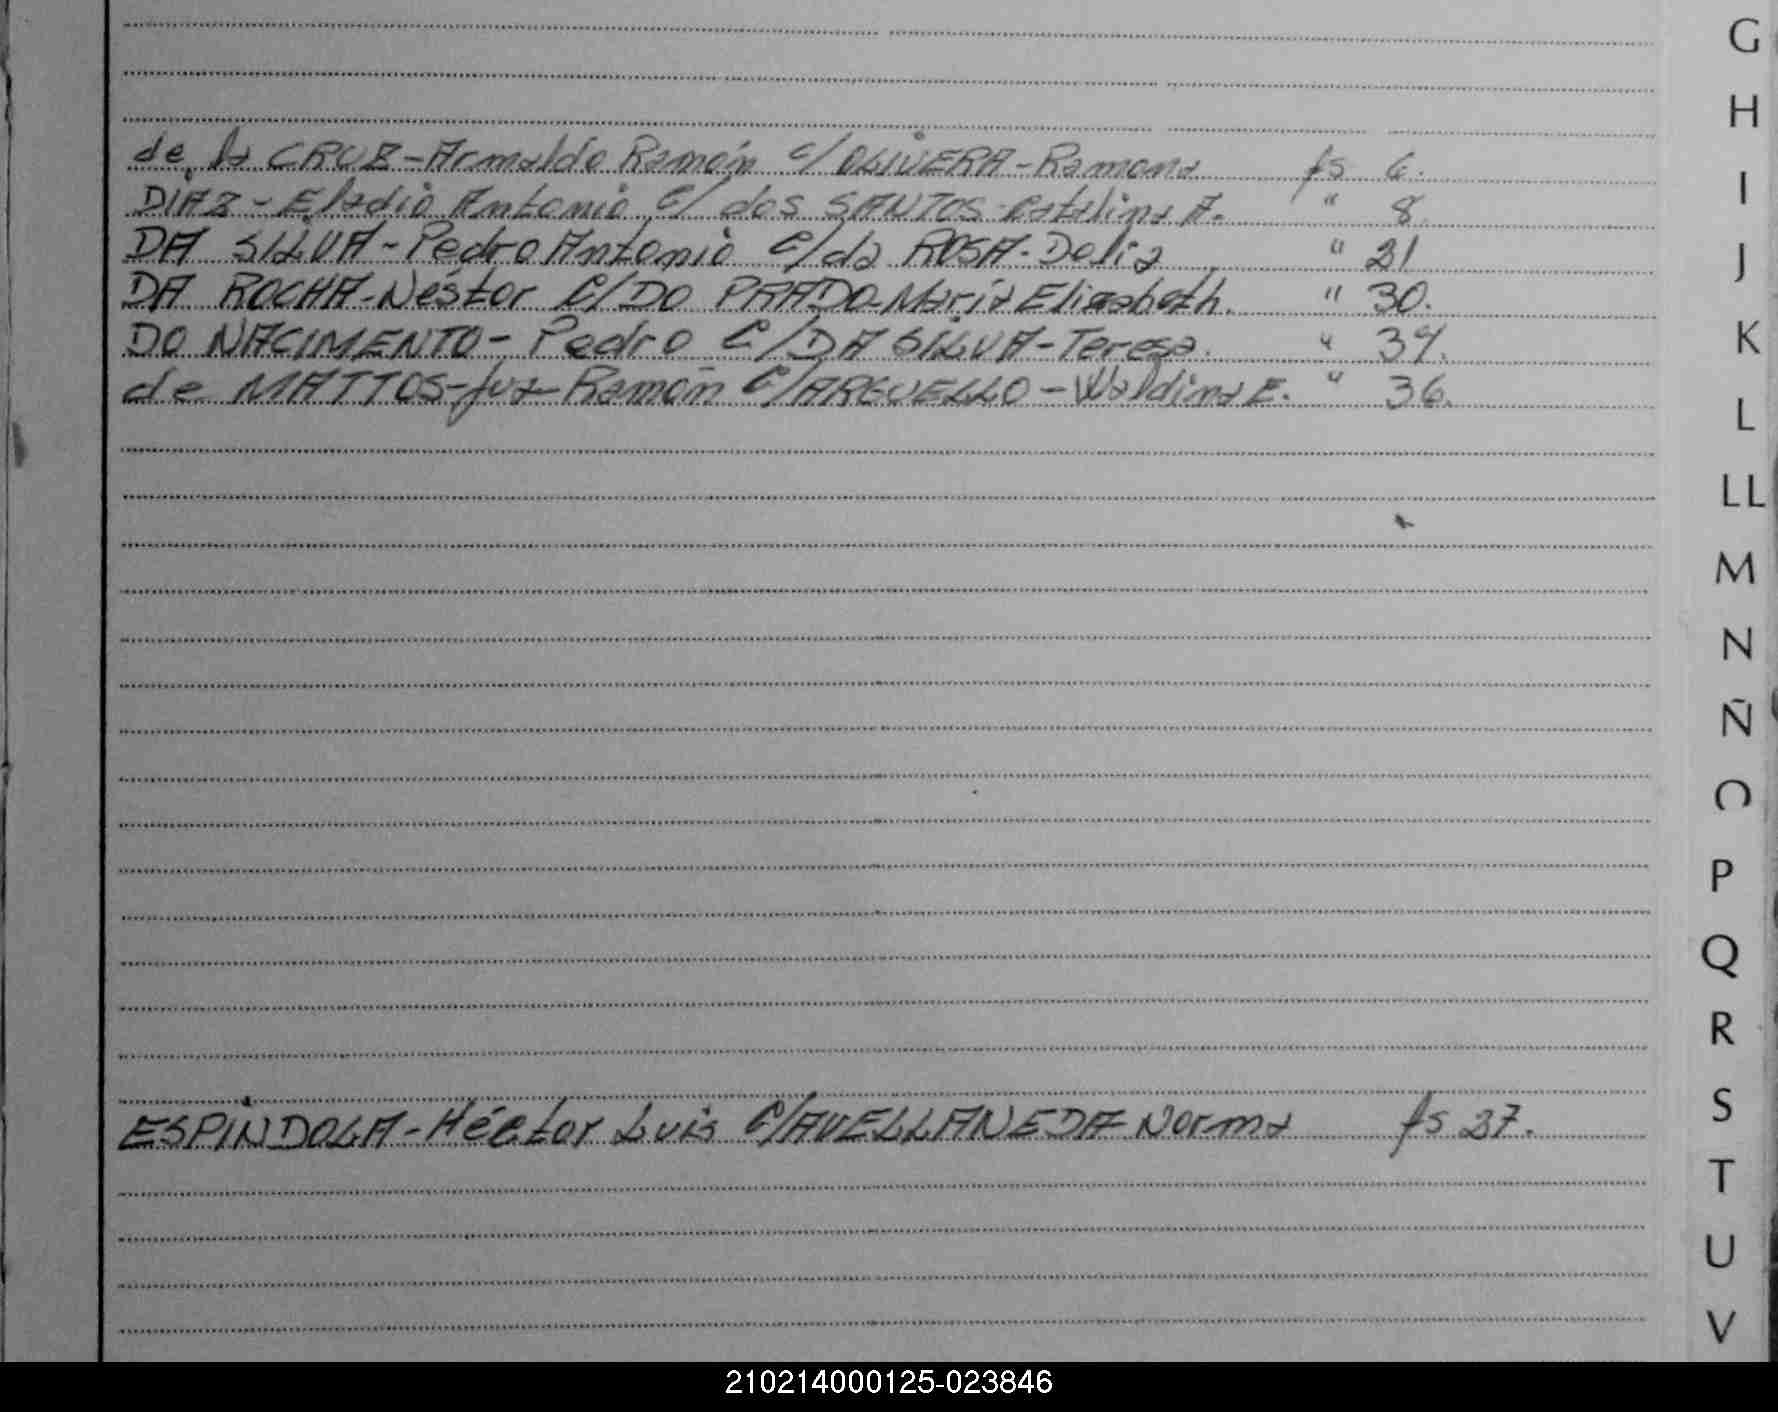 de la CRUZ - Arnaldo Ramón c/ OLIVERA - Ramona fs 6.
DIAZ - Eladio Antonio c/ dos SANTOS - Catalina A. " 8.
DA SILVA - Pedro Antonio c/ da ROSA - Delia " 21
DA ROCHA - Néstor c/ DO PRADO - María Elizabeth. " 30.
DO NACIMENTO - Pedro c/ DA SILVA - Teresa. " 34.
de MATTOS - Ramón c/ ARGUELLO - Waldina E. " 36.
ESPÍNDOLA - Héctor Luis c/ AVELLANEDA Norma fs 27.
G
H
I
J
K
L
LL
M
N
Ñ
O
P
Q
R
S
T
U
V
210214000125-023846